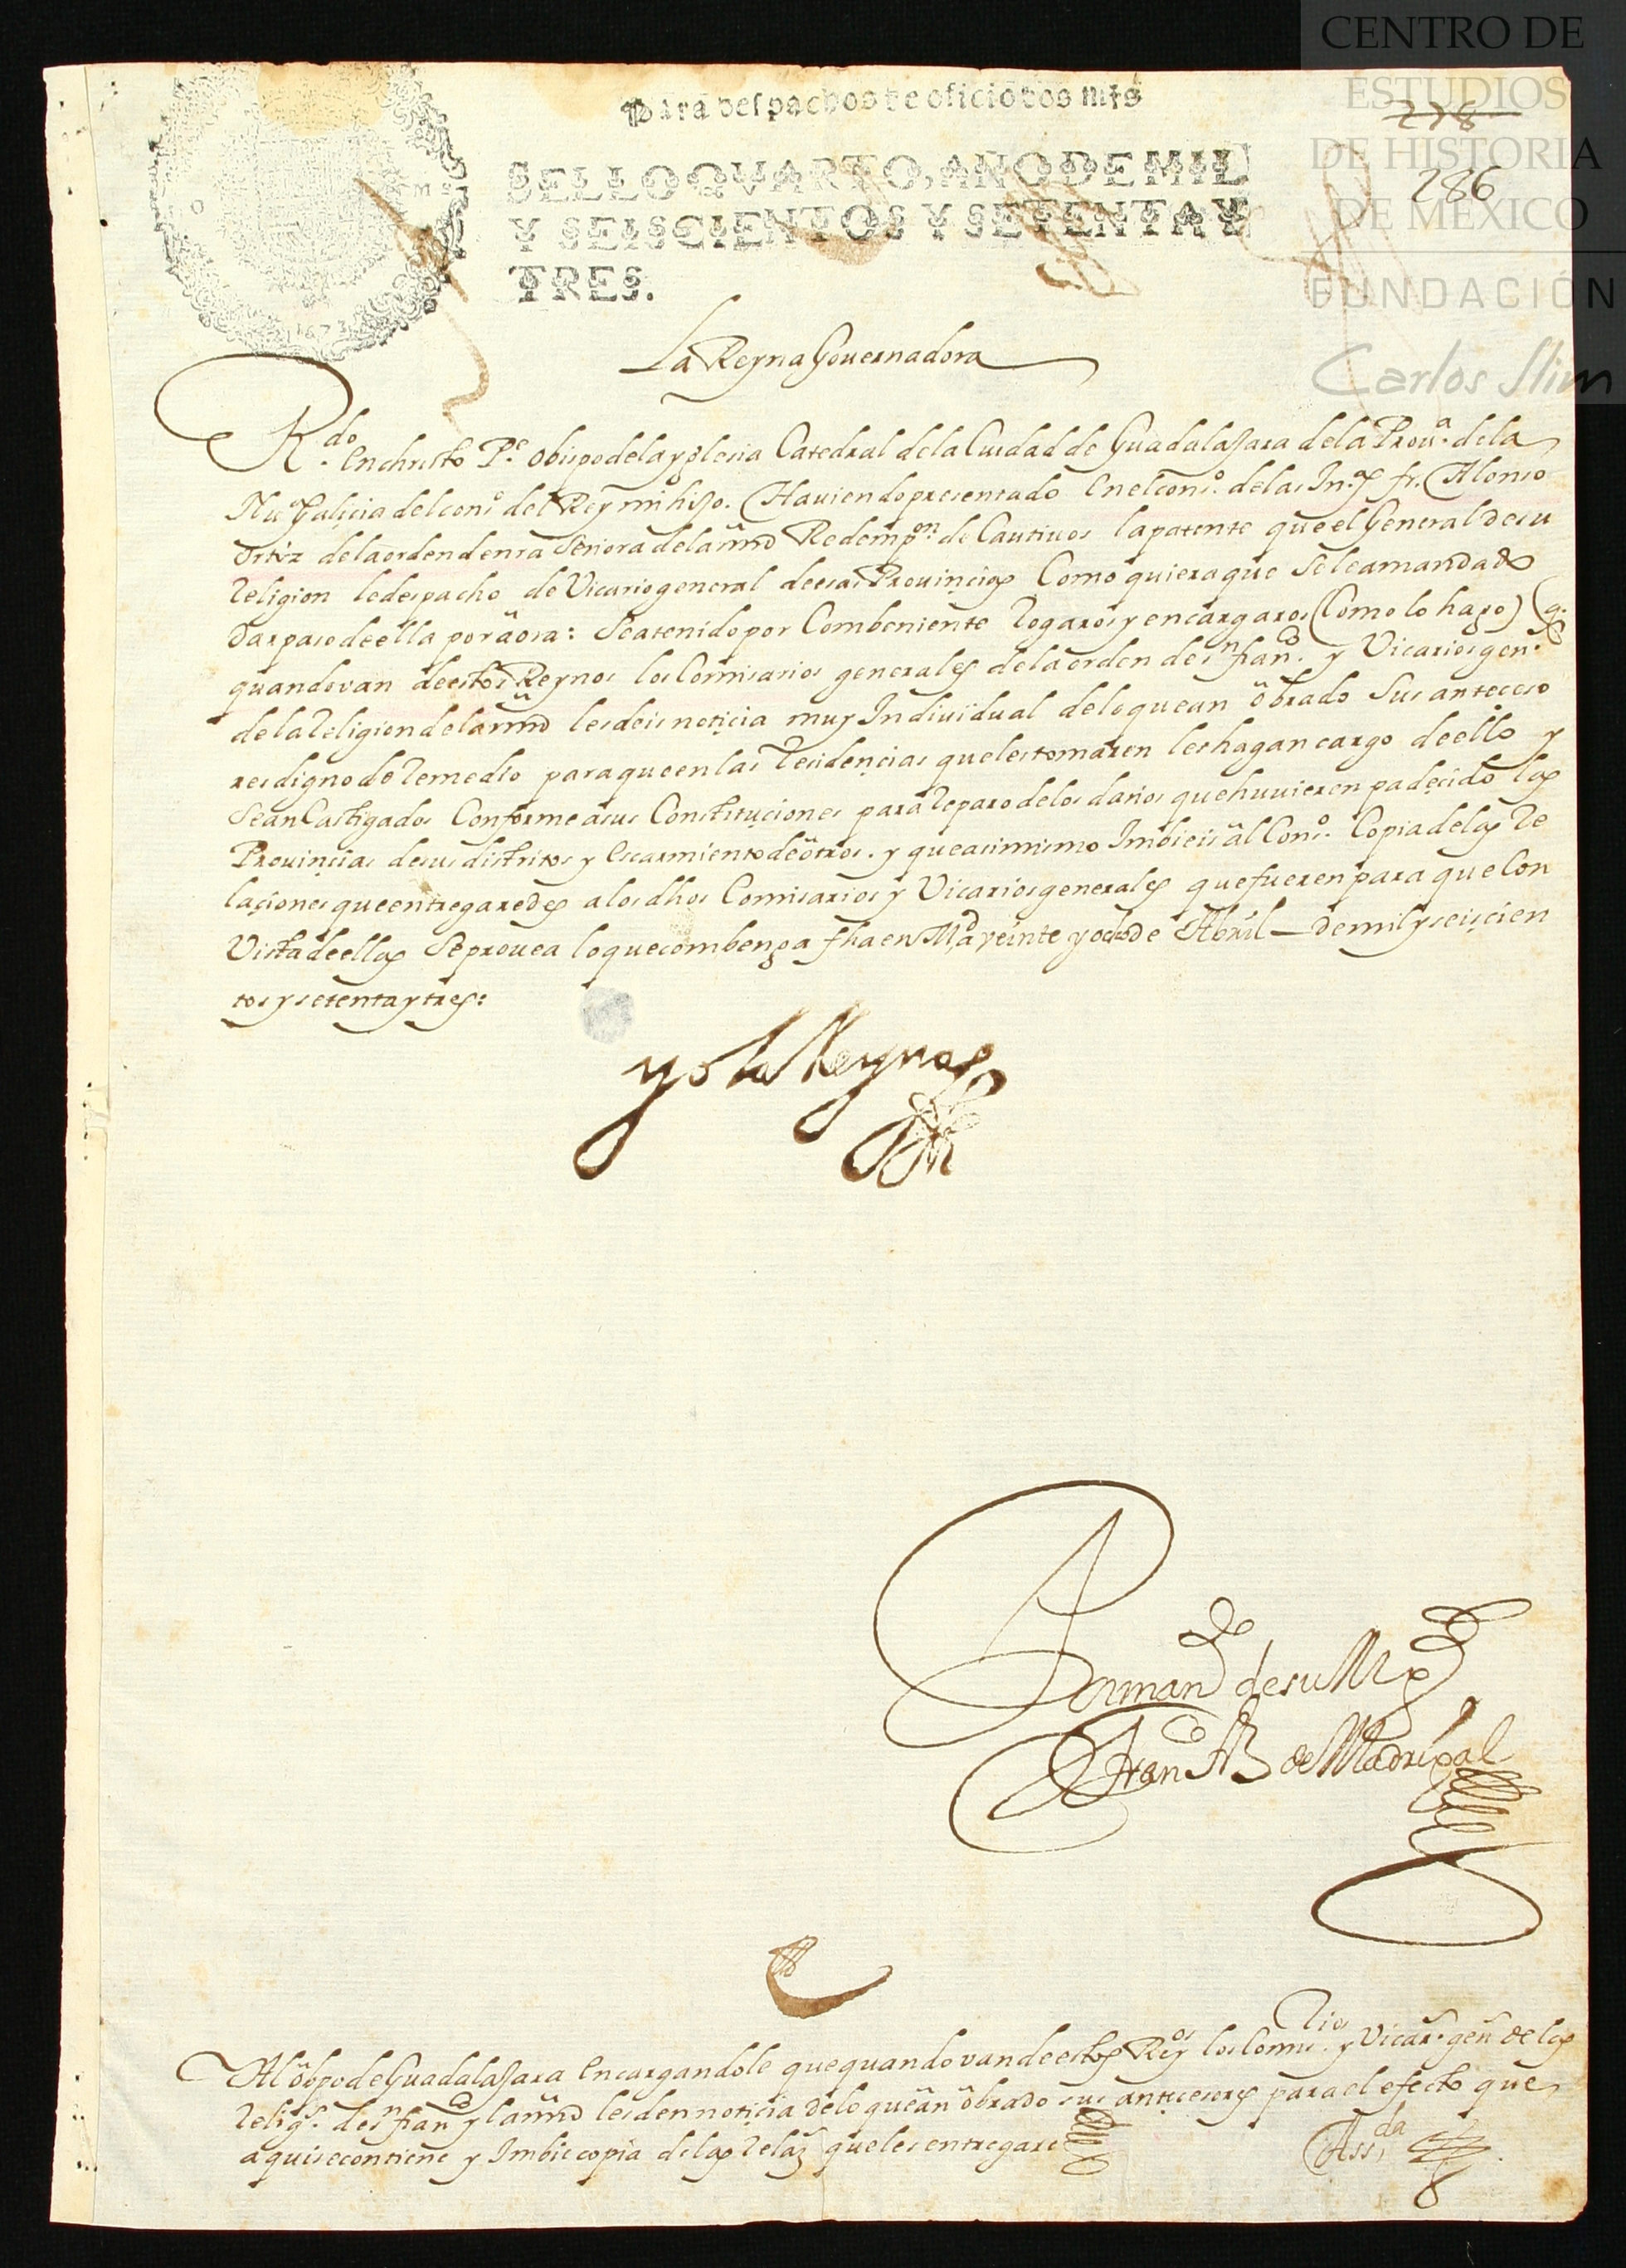 CENTRO DE
ESTUDIOS
DE HISTORIA
DE MÉXICO
FUNDACIÓN
Carlos Slim
278
286
Para despachos de oficio dos mrs
SELLO QVARTO, AÑO DE MIL
Y SEISCIENTOS Y SETENTA Y
TRES.
1673
La Reyna Gouernadora
R.do en christo P.e obispo de la yglesia Catedral de la Ciudad de Guadalaxara de la Prou.a de la
Nu.a Galicia del cons.o del Rey mi hijo. Hauiendo presentado en el cons.o de las Ind.s fr. Alonso
Ortiz de la orden de nra Señora de la mrd Redemp.on de Cautiuos la patente que el General de su
Religion le despacho de Vicario general de esas Prouincias Como quiera que se le a mandado
dar paso de ella por aora: Se a tenido por Combeniente Rogaros y encargaros (Como lo hago) q.e
quando van de estos Reynos los Comisarios generales de la orden de s.n fran.co y Vicarios gen.s
de la Religion de la mrd les deis noticia muy Indiuidual de lo que an obrado Sus anteceso
res digno de Remedio para que en las Residencias que les tomaren les hagan cargo de ello y
Sean Castigados Conforme a sus Constituciones para Reparo de los daños que huuieren padecido las
Prouincias de sus distritos y escarmiento de otros. y que asimismo Imbieis al Cons.o Copia de las Re
laciones que entregaredes a los dhos Comisarios y Vicarios generales que fueren para que Con
Vista de ellas Se prouea lo que combenga fha en Md a veinte y ocho de Abril de mil y seiscien
tos y setenta y tres:
yo la Reyna
Por mand.do de su Mg.d
Fran.co frz de Madrigal
Al obpo de Guadalaxara encargandole que quando van de estos Rey.os los Comis.rios y Vicar.s gen.s de las
Relig.s de s.n fran.co y la mrd les den noticia de lo que an obrado sus antecesores para el efecto que
aqui se contiene y Imbie copia de las Relaz.s que les entregare
Ass.da